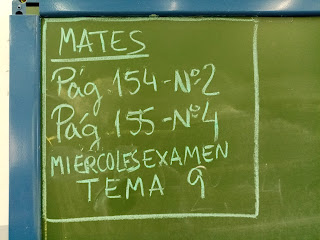 MATES
Pág. 154-Nº2
Pág. 155-Nº4
MIÉRCOLES EXAMEN
TEMA 9